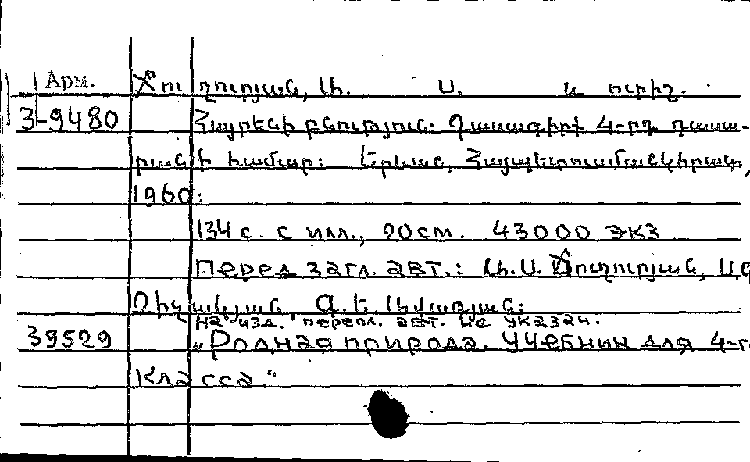 Арм. Ճուղուրյան, Ա. Ս. և ուրիշ.
3-9480 Հայրենի բնություն: Դասագիրք 4-րդ դասա-
րանի համար: Երևան, Հայպետուսմանկհրատ,
1960:
134 с. с илл., 20см. 43000 экз
Перед загл. авт.: Ա.Ս. Ճուղուրյան,
Գ. Ե.
На изд. перепл. авт. не указан.
39529 "Родная природа. Учебник для 4-го
класса."